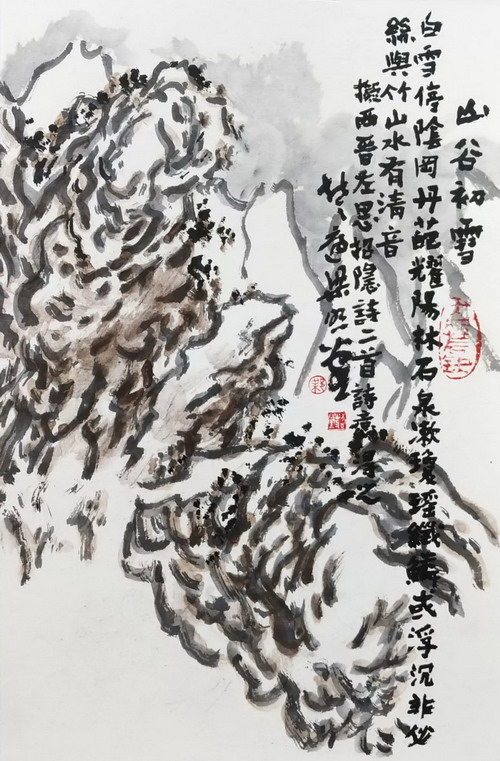 山谷初雪
白雪停陰岡丹葩耀陽林石泉漱瓊瑤纖鱗或浮沉非必
絲與竹山水有清音
擬西晉左思招隱詩二首詩意得之